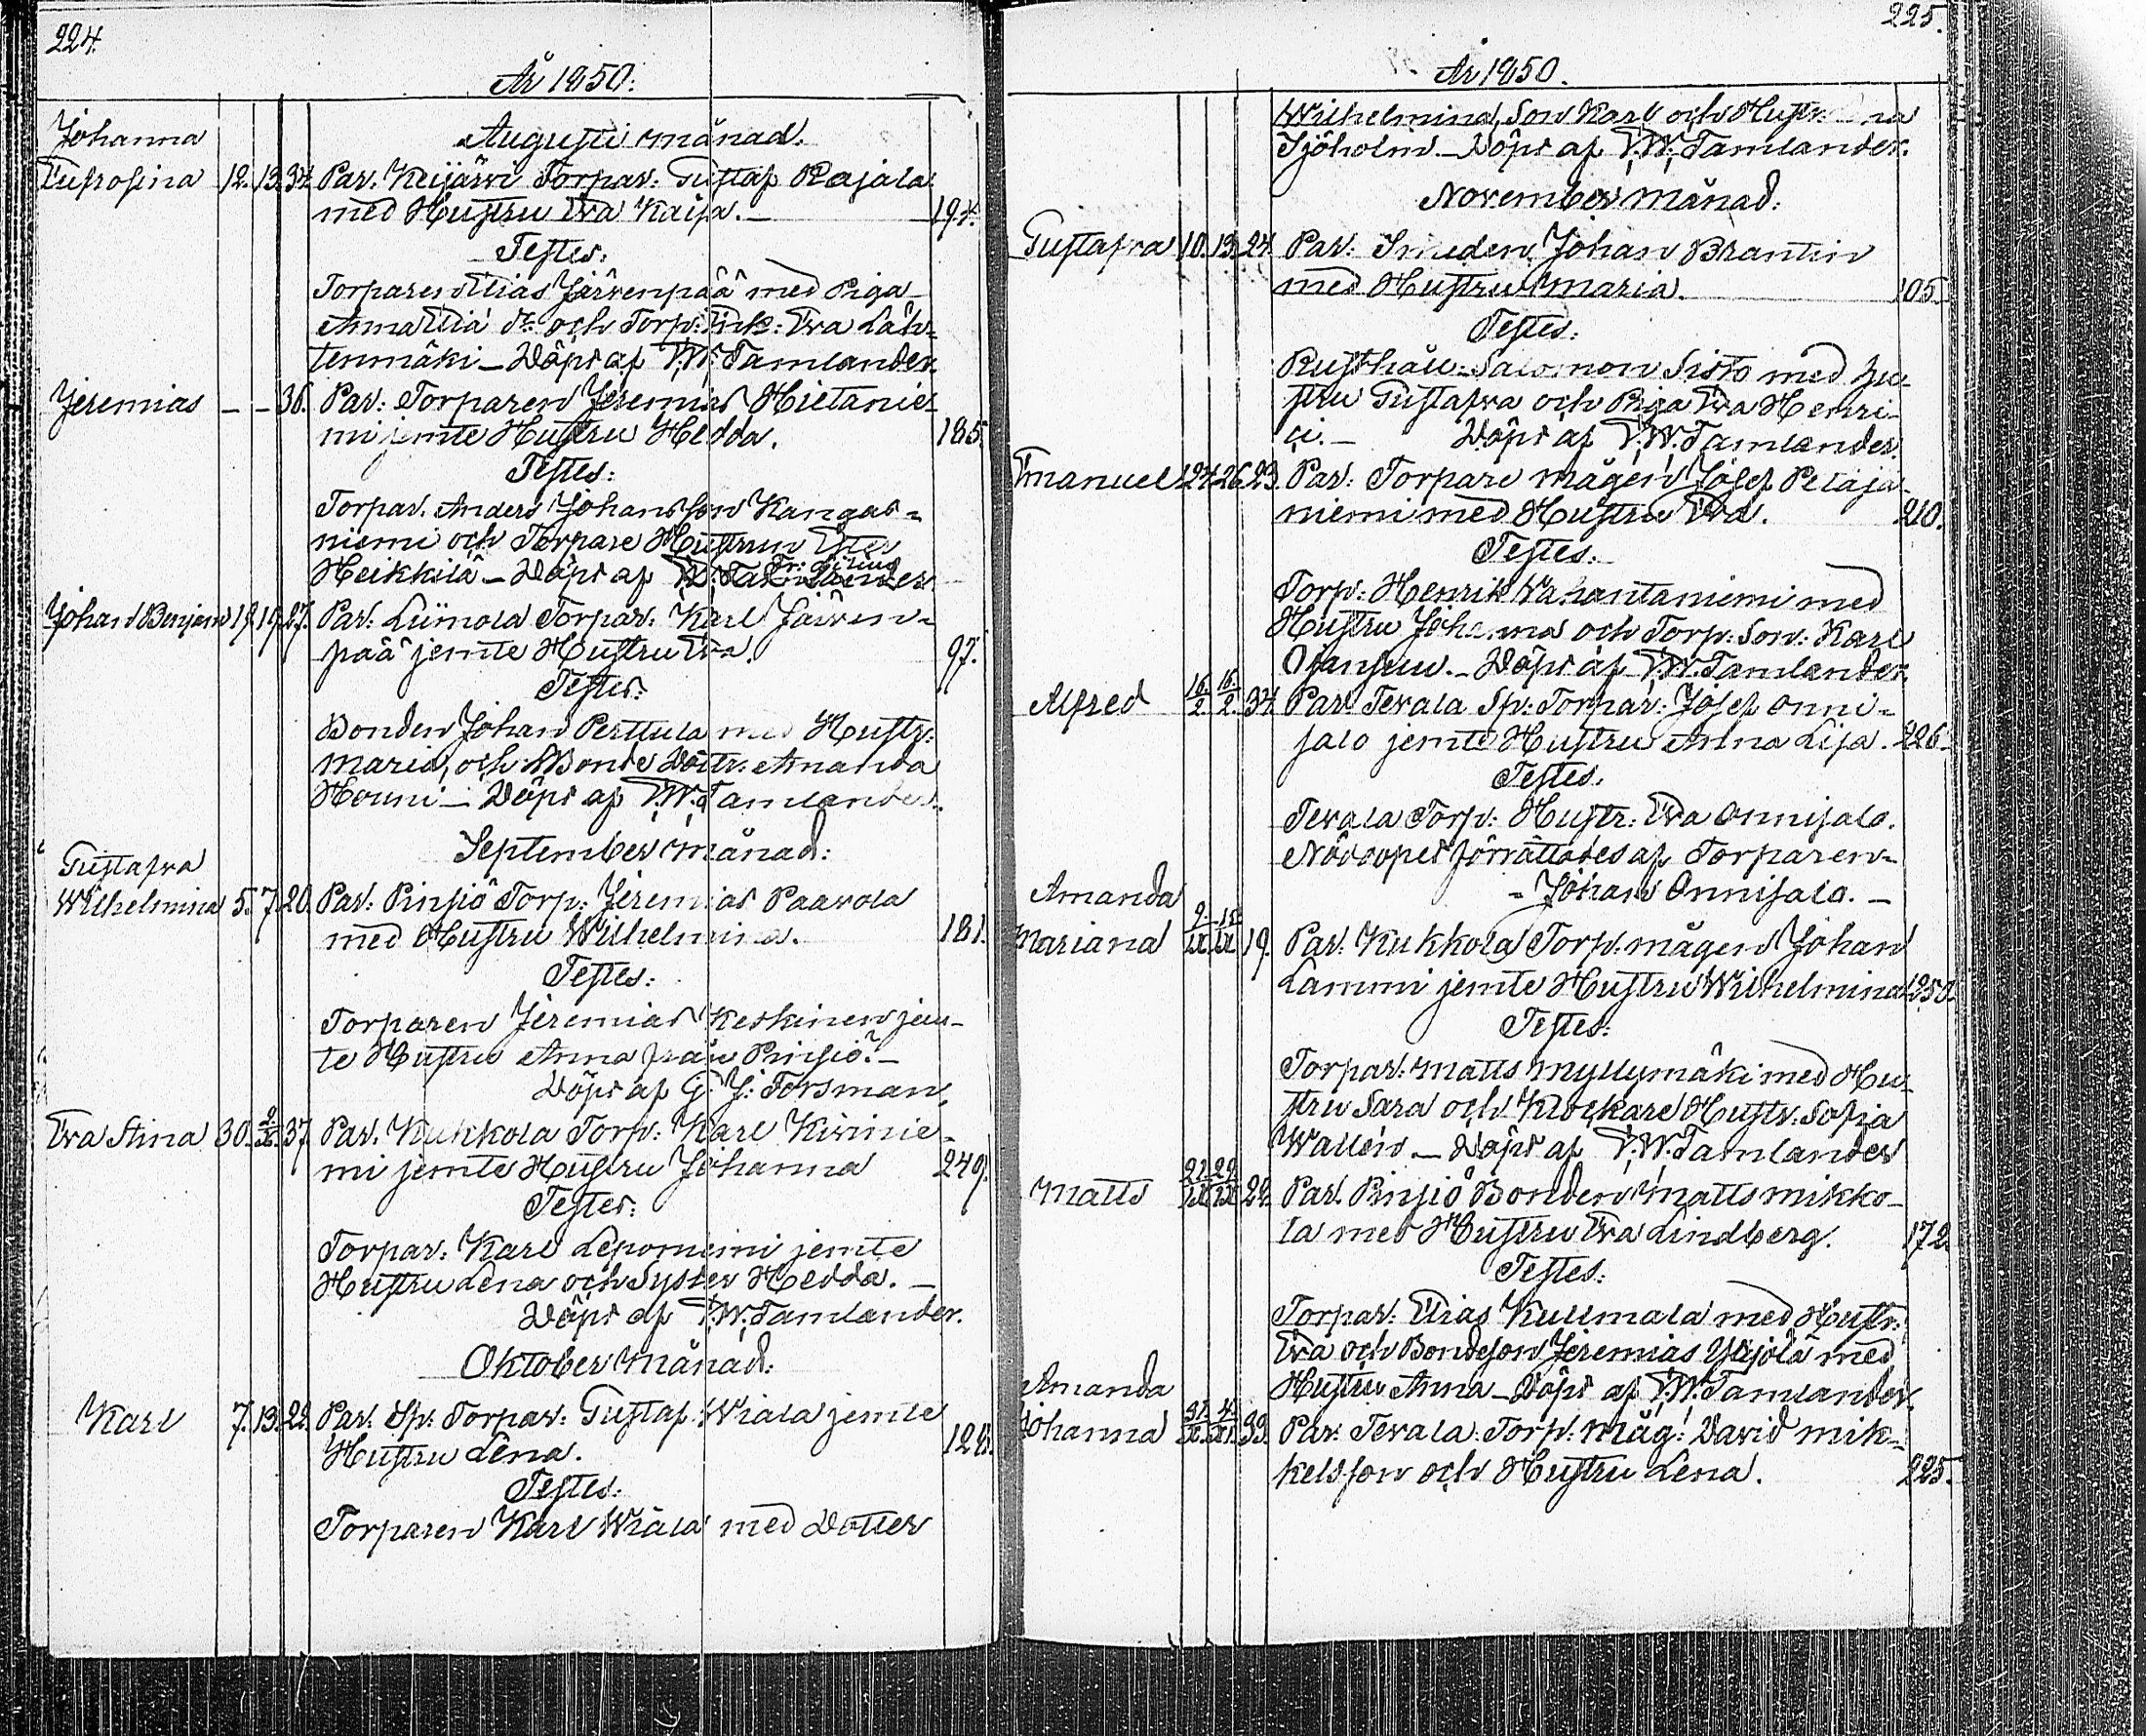 224.
År 1850.
Johanna
Eufrosina 12. 13. 34.
Augusti månad.
Par. Keijärvi Torpar: Gustaf Rajala
med Hustru Eva Kaisa. 194.
Testes:
Torparen Elias Järvenpää med Piga
Anna Elia dr. och Torp: Enk: Eva Läh-
tenmäki – Döpt af F. W. Tamlander.
Jeremias – – 36. Par: Torparen Jeremias Hietanie-
mi jemte Hustru Hedda. 185.
Testes:
Torpar. Anders Johansson Kangas-
niemi och Torpare Hustrun
Heikkilä – Döpt af
Johan Benjam 19. 19. 27. Par: Liimola Torpar: Karl Järven-
pää jemte Hustru Eva. 97.
Testes:
Bonden Johan Perttula med Hustr:
Maria, och Bonde Dottr: Amanda
Houni – Döpt af F. W. Tamlander.
September månad:
Gustafva
Wilhelmina 5. 7. 20. Par: Pinsiö Torp: Jeremias Paavola
med Hustru Wilhelmina. 181.
Testes:
Torparen Jeremias Keskinen jem-
te Hustru Anna från Pinsiö. –
Döpt af G. J. Forsman.
Eva Stina 30. 2/X. 37. Par. Kukkola Torp: Karl Kivinie-
mi jemte Hustru Johanna 249.
Testes:
Torpar: Karl Leponiemi jemte
Hustru Lena och Syster Hedda. –
Döpt af F. W. Tamlander.
Oktober månad:
Karl 7. 13. 22. Par: Sp: Torpar: Gustaf Wiala jemte
Hustru Lena. 128.
Testes:
Torparen Karl Wiala med Dotter
225.
År 1850.
Wilhelmina, Son Karl och Hustr.
Sjöholm. – Döpt af F. W. Tamlander.
November månad:
Gustafva 10. 13. 24. Par: Smeden Johan Brantin
med Hustru Maria. 105.
Testes:
Rusthåll: Salomon Sisto med Hu-
stru Gustafva och Piga Eva Henri-
ci. – Döpt af F. W. Tamlander.
Emanuel 24. 26. 23. Par: Torpare mågen Josef Petäjä-
niemi med Hustru Eva. 210.
Testes:
Torp: Henrik Wahantaniemi med
Hustru Johanna och Torp: Son: Karl
Ojansuu. – Döpt af F. W. Tamlander.
Alfred 16/2. 16/2. 34. Par: Tevala Sp: Torpar: Josef Onni-
salo jemte Hustru Anna Lisa. 226.
Testes:
Tevala Torp: Hustr: Eva Onnisalo.
Nöddopet förrättades af Torparen
Johan Onnisalo. –
Amanda
Mariana 9/IX. 15/IX. 19. Par: Kukkola Torp: mågen Johan
Lammi jemte Hustru Wilhelmina 250.
Testes:
Torpar: Matts Myllymäki med Hu-
stru Sara och Klockare Hustr: Sofia
Wallen – Döpt af F. W. Tamlander
Matts 22/IX 29/IX 24. Par. Pinsiö Bonden Matts Mikko-
la med Hustru Eva Lindberg. 172.
Testes:
Torpar: Elias Kullmala med Hustr:
Eva och Bondeson Jeremias Ylijolä med
Hustru Anna – Döpt af F. W. Tamlander.
Amanda
Johanna 33. Par: Tevala: Torp: Måg: David Mik-
kelsson och Hustru Lena. 225.